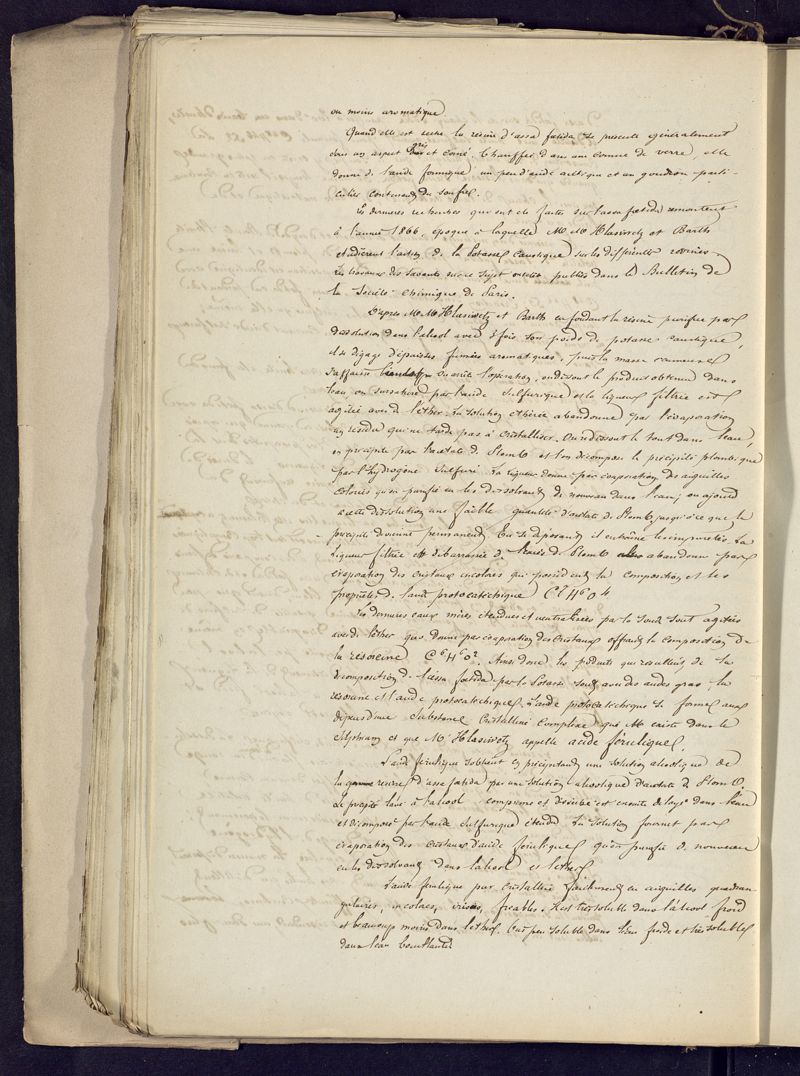 ou moins aromatique
Quand elle est sèche la résine d'assa fœtida se présente généralement
sous un aspect gris et corné. Chauffée dans une cornue de verre, elle
donne de l'acide formique, un peu d'acide acétique et un goudron parti-
culier contenant du soufre.
Les dernières recherches qui ont été faites sur l'assa fœtida remontent
à l'année 1866, époque à laquelle M.M. Hlasiwetz et Barth
étudièrent l'action de la Potasse caustique sur les différentes résines.
Les travaux des savants sur ce sujet ont été publiés dans le Bulletin de
la Société chimique de Paris.
D'après M.M. Hlasiwetz et Barth en fondant la résine purifiée par
dissolution dans l'alcool avec 3 fois son poids de potasse caustique,
il se dégage d'épaisses fumées aromatiques, puis la masse écumeuse
s'affaisse. On arrête l'opération, on dissout le produit obtenu dans
l'eau, on sursature par l'acide sulfurique et la liqueur filtrée est
agitée avec de l'éther. La solution éthérée abandonne par l'évaporation
un résidu qui ne tarde pas à cristalliser. On redissout le tout dans l'eau,
on précipite par l'acétate de Plomb et l'on décompose le précipité plombique
par l'hydrogène sulfuré. La liqueur donne par évaporation des aiguilles
colorées qu'on purifie en les dissolvant de nouveau dans l'eau; on ajoute
à cette dissolution une faible quantité d'acétate de Plomb, jusqu'à ce que le
précipité devienne permanent. En se déposant il entraîne les impuretés. La
liqueur filtrée et débarrassée de l'excès de Plomb abandonne par
évaporation des cristaux incolores qui possèdent la composition et les
propriétés de l'acide protocatéchique C7 H6 O4
Les dernières eaux mères étendues et neutralisées par la soude sont agitées
avec de l'éther qui donne par évaporation des cristaux offrant la composition de
la résorcine C6 H6 O2. Ainsi donc, les produits qui résultent de la
décomposition de l'assa fœtida par la Potasse sont, avec des acides gras, la
résorcine et l'acide protocatéchique. L'acide protocatéchique se forme aux
dépens d'une substance cristalline complexe qui existe dans le
Silphium et que Mr Hlasiwetz appelle acide férulique.
L'acide férulique s'obtient en précipitant une solution alcoolique de
la résine d'assa fœtida par une solution alcoolique d'acétate de Plomb.
Le précipité lavé à l'alcool, comprimé et desséché est ensuite délayé dans l'eau
et décomposé par l'acide sulfurique étendu. La solution fournit par
évaporation des cristaux d'acide férulique qu'on purifie de nouveau
en les dissolvant dans l'alcool et l'éther.
L'acide férulique pur cristallise facilement en aiguilles quadran-
gulaires, incolores, irisées, friables. Il est très soluble dans l'alcool froid
et beaucoup moins dans l'éther. Il est peu soluble dans l'eau froide et très soluble
dans l'eau bouillante.